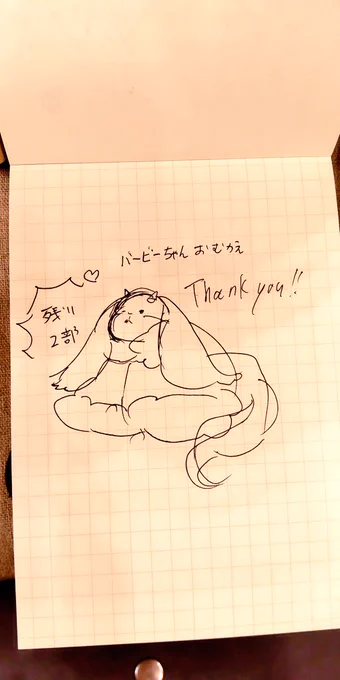 バービーちゃん おむかえ
Thank you!!
残り
2部